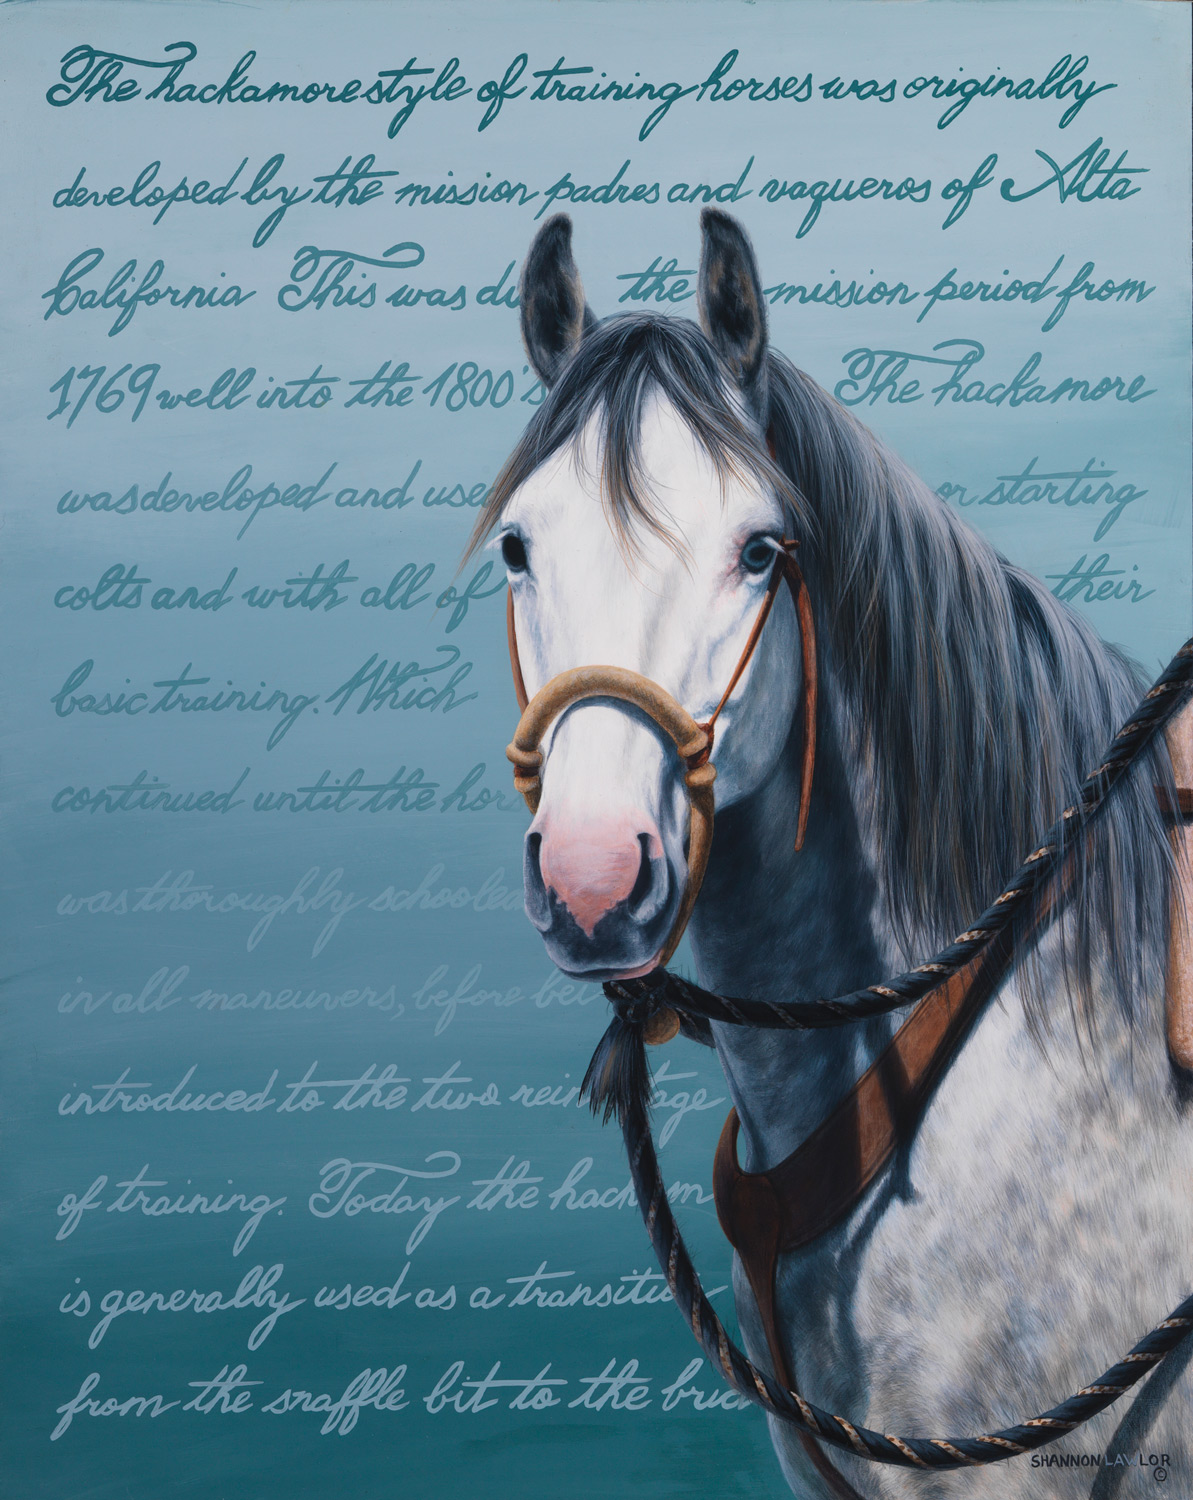 The hackamore style of training horses was originally
developed by the mission padres and vaqueros of Alta
California This was du the mission period from
1769 well into the 1800's The hackamore
was developed and used or starting
colts and with all of their
basic training. Which
continued until the hor
was thoroughly schooled
in all maneuvers, before bei
introduced to the two rein tage
of training. Today the hack m
is generally used as a transiti
from the snaffle bit to the brid
SHANNON LAWLOR
©